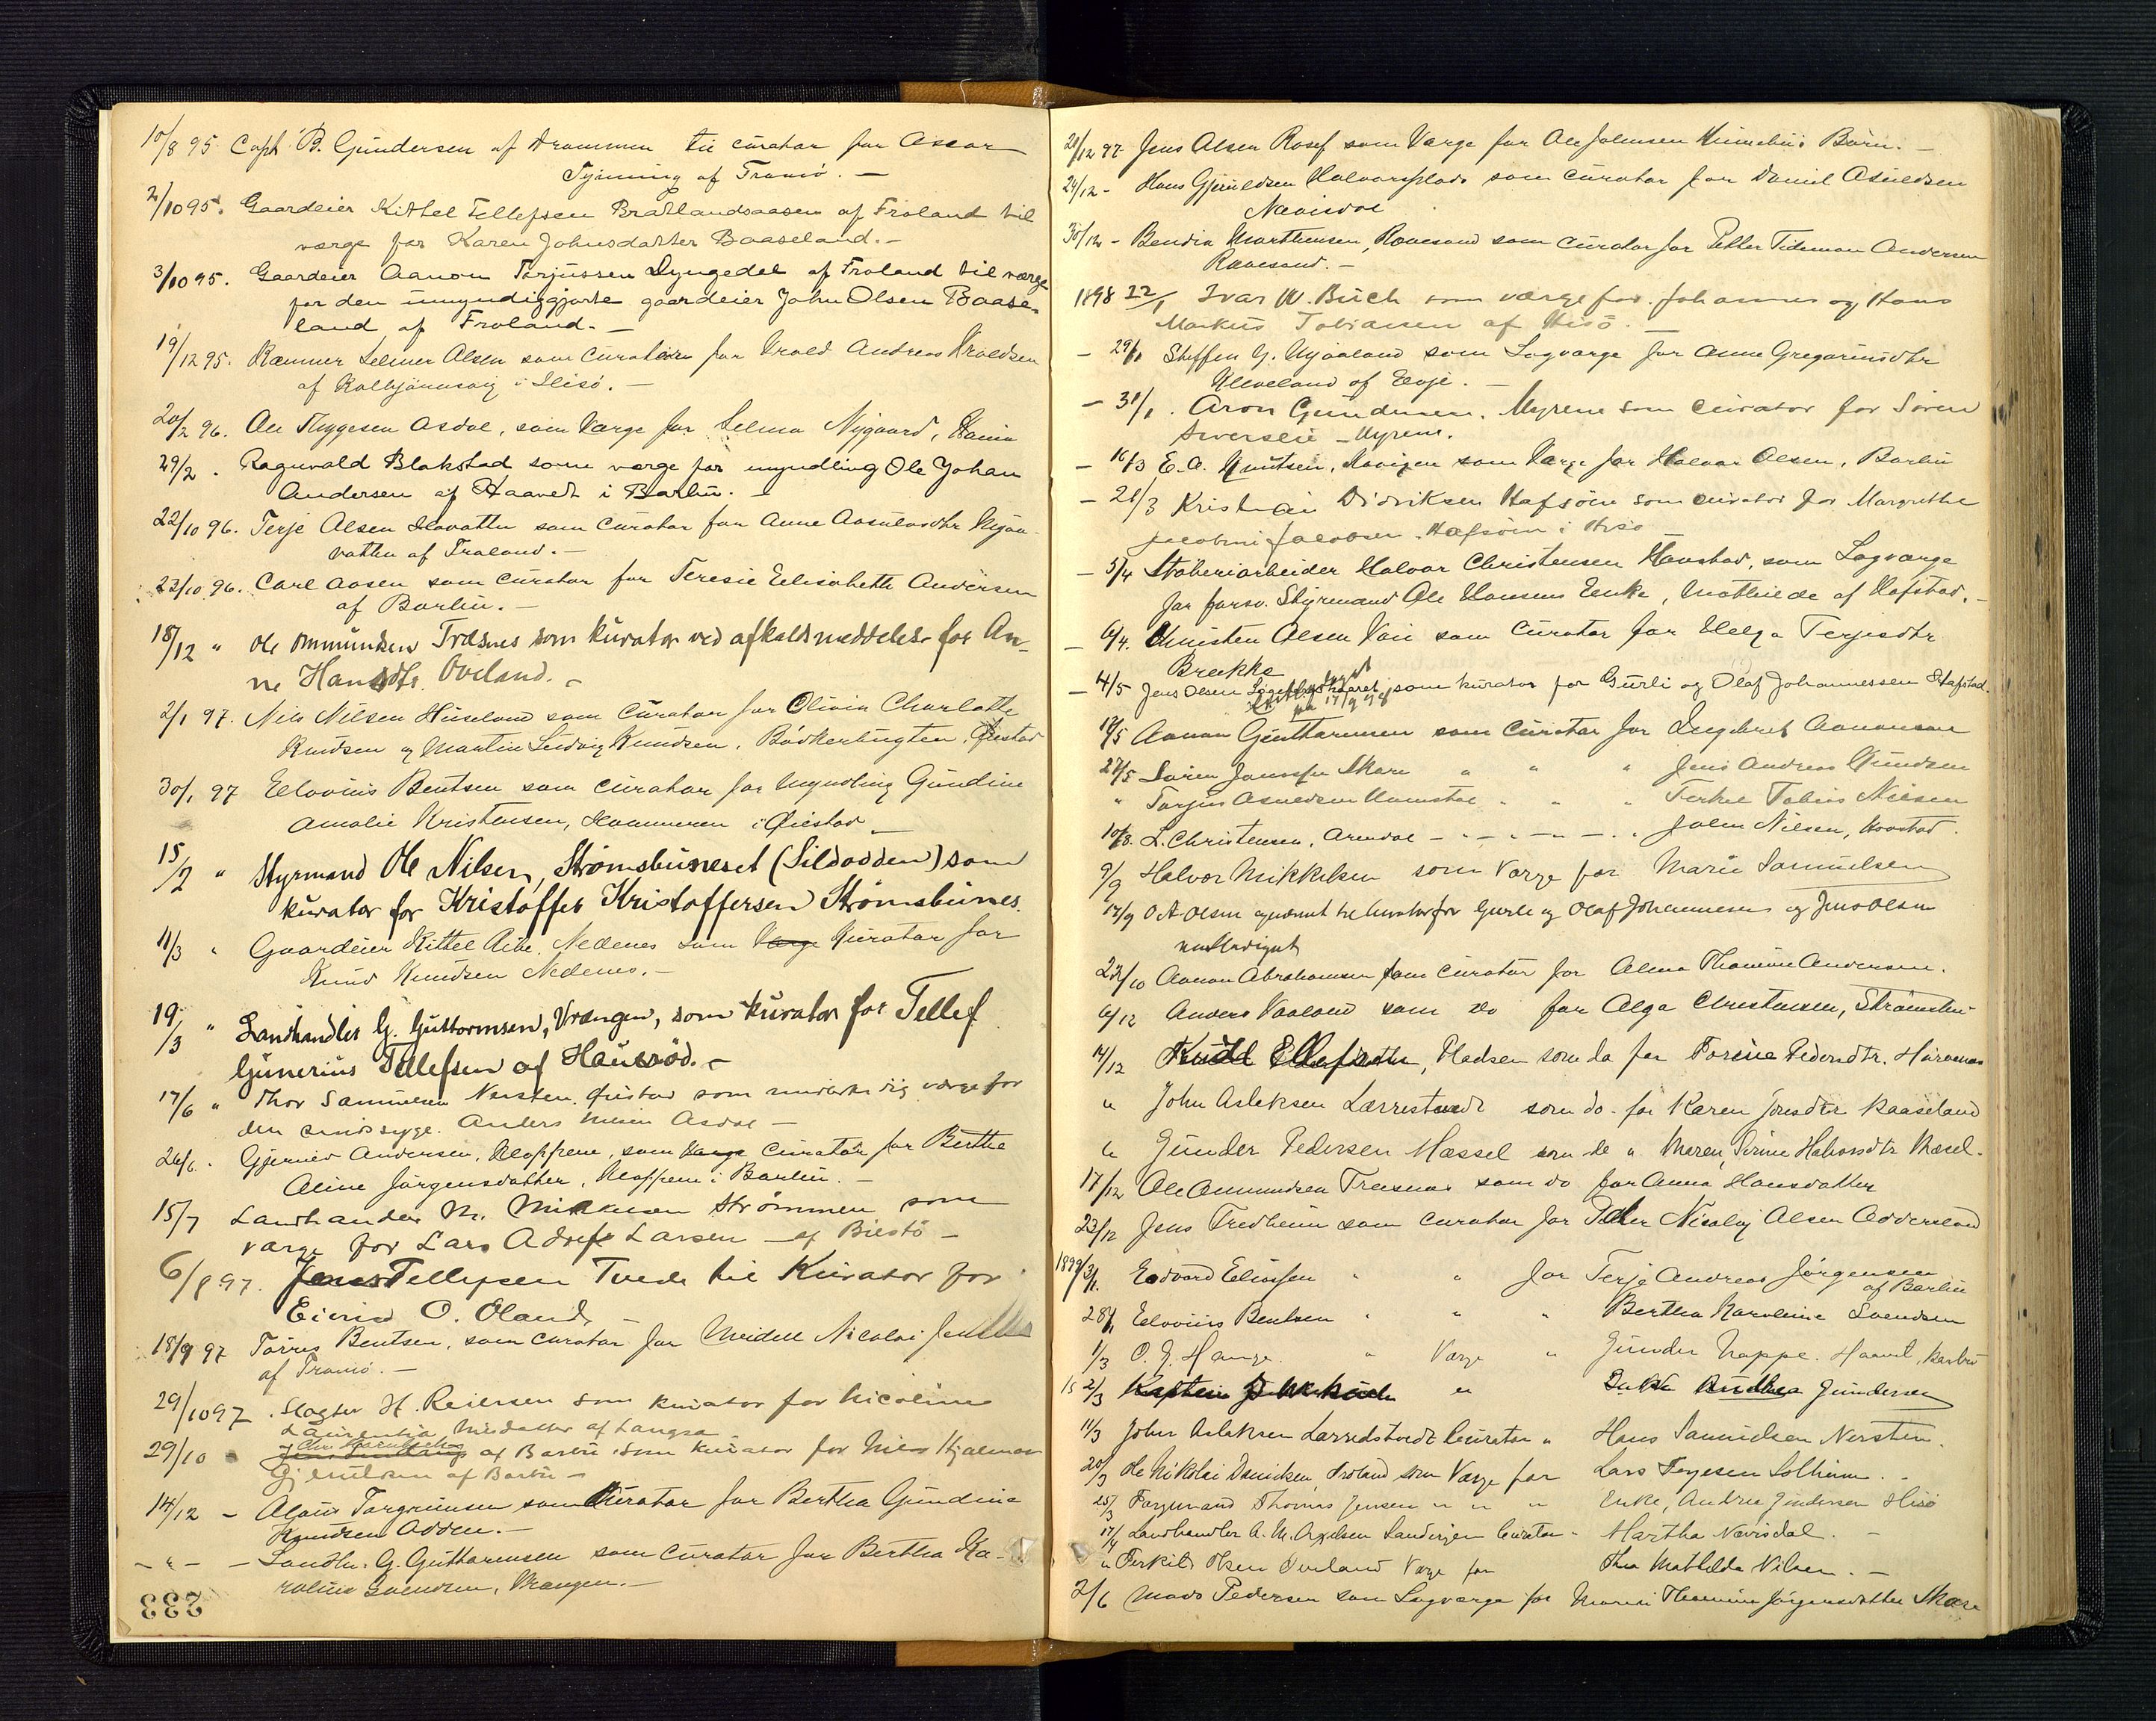 10/8 95 Capt B. Gundersen af Drammen til curator for Oscar
Tynning af Tromö. —
2/10 95. Gaardeier Kittel Tellefsen Bratlandsaasen af Froland til
værge for Karen Johnsdatter Baaseland. —
3/10 95. Gaardeier Aanon Terjussen Lyngedel af Froland til værge
for den umyndiggjorte gaardeier John Olsen Baase-
land af Froland. —
19/12 95. Kæmner Selmer Olsen som Curator for Arold Andreas Aroldsen
af Kolbjörnsvig i Hisö. —
20/2 96. Ole Thygesen Asdal, som Værge for Selma Nygaard,
29/2 . Ragnvald Blakstad som værge for myndling Ole Johan
Andersen af Haavet i Barbu. —
22/10 96. Terje Olsen som Curator for Anne Aasulvsdtr Mjaa-
vatten af Froland. —
23/10 96. Carl Aasen som Curator for Teresie Elisabeth Andersen
af Barbu. —
18/12 " Ole Ommundsen Træsnes som kurator ved afkaldsmeddelelse for An-
ne Hansdtr. Oveland. —
2/1 97. Nils Nilsen Huseland som Curator for Olivia Charlotte
Knudsen og Martin Ludvig Knudsen, Bödkerbugten, Öiestad
30/1 97 Ellovius Bentsen som Curator for Myndling Gundine
Amalie Kristensen, Kammeren i Öiestad —
15/2 " Styrmand Ole Nilsen, Strømsbuneset (Sildodden) som
kurator for Kristoffer Kristoffersen Strømsbunes.
11/3 " Gaardeier Kittel Aibe. Nedenes som Værge Curator for
Knud Knudsen Nedenes. —
19/3 " Landhandler G. Guttormsen, Vrængen, som kurator for Tellef
Gunerius Tellefsen af Hausöd. —
17/6 " Thor Samuelsen Nersten Öiestad som midlertidig værge for
den sindssyge Anders Asdal —
26/6 . Gjerulv Andersen, Kloppene, som Værge Curator for Berthe
Aline Jörgensdatter, Kloppene i Barbu. —
15/7 Landhandler M. Mikkelsen Strømmen som
værge for Lars Adolf Larsen — af Biestö —
6/8 97. Jens Tellefsen Tvede til Kurator for
Eivind O. Öland —
18/9 97 Torris Bentsen, som curator for Meidell Nicolai Jensen
af Tromö. —
29/10 97 . Slagter H. Reiersen som kurator for Nicoline
Laurentia Nilsdatter af Langsæ
29/10 af Barbu som kurator for Nils Hjalmar
Gjerulvsen af Barbu —
14/12 – Olaus Torgrimsen som Curator for Bertha Gundine
Knudsen Odden. —
– " – – Landh. G. Guttormsen som Curator for Bertha Ka-
roline Svendsen, Vrængen. —
233
21/12 97 Jens Olsen Rosef som Værge for Ole Johnsen Börn. —
24/12 – Hans Gjeruldsen Halvorsplads som Curator for Daniel Osuldsen
Nævisdal
30/12 – Bendix Marthinsen, Rævesand som Curator for Petter Tidemann Andersen
Rævesand. —
1898 22/1 Ivar W. Buch som værge for Johannes og Hans
Markus Tobiassen af Hisö. —
– 29/1 Steffen G. Mjaaland som Lagværge for Anne Gregoriusdtr
Kleveland af Evje. —
– 31/1 . Aron Gundersen, Myrene som curator for Sören
Syverslie – Myrene.
– 16/3 E. A. Knutsen, som Værge for Halvor Olsen, Barbu
– 21/3 Kristian Didriksen Hafsöen som curator for Margrethe
Jacobine Jacobsen Hafsöen i Hisö
– 5/4 Stöberiarbeider Halvor Christensen Havstad, som Lagværge
for forsv. Styrmand Ole Hansens Enke, Mathilde af Hafstad. —
– 6/4. Christen Olsen Vaie som Curator for Helga Terjesdtr
Brekke
– 14/5 Jens Olsen som kurator for Gurli og Olaf Johannessen Hafstad.
17/9 98
19/5 Aanon Guttormsen som Curator for Ingebret Aanonsen
27/5 Sören Jensen Skare " " " Jens Andreas Gundersen
" Torjus Osuldsen " " " Terkel Tobias Nilsen
10/8. L. Christensen, Arendal – " – " – " John Nilsen, Havstad.
9/9 Halvor Mikkelsen som Værge for Marie Samuelsen
17/9 O A Olsen opnævnt til kurator for Gurli og Olaf Johannessen og Jens Olsen
entlediget
22/10 Aanon Abrahamsen som curator for Alma Thomine Andersen.
6/12 Anders Vaaland som do for Olga Christensen, Strömsbu-
14/12 Ellefsen, Madsen som do for Torine Pedersdtr.
" John Aslaksen Lærrestvedt som do for Karen Joresdtr Baaseland
" Gunder Pedersen Mæssel som do " Maren Sirine Halvorsdtr Mæsel.
17/12 Ole Ommundsen Træsnes som do for Anna Hansdatter
23/12 Jens Fredheim som Curator for Peder Nicolaj Olsen Oddersland
1899 3/1. Edvard Ellingsen " " for Terje Andreas Jörgensen
af Barbu
28/1 Ellovius Bentsen " " " Bertha Karoline Svendsen
1/3 O. G. Hauge " Værge " Gunder Noppe. Haavet, Barbu
2/3 Kaptein " Gundersen
11/3 John Aslaksen Lærrestvedt Curator " Hans Samuelsen Nersten.
20/3 Ole Nikolai Danielsen, Froland som Værge for Lars Terjesen Solheim. –
25/3 Færgemand Thomas Jensen " " " Enke, Andrea Gundersen Hisö
17/4 Landhandler A. M. Axelsen Sandvigen Curator " Martha Nævisdal. –
" Terkild Olsen Overland Værge for Thea Mathilde Nilsen. –
2/6 Mads Pedersen som Lagværge for Maren Thomine Jörgensdatter Skare